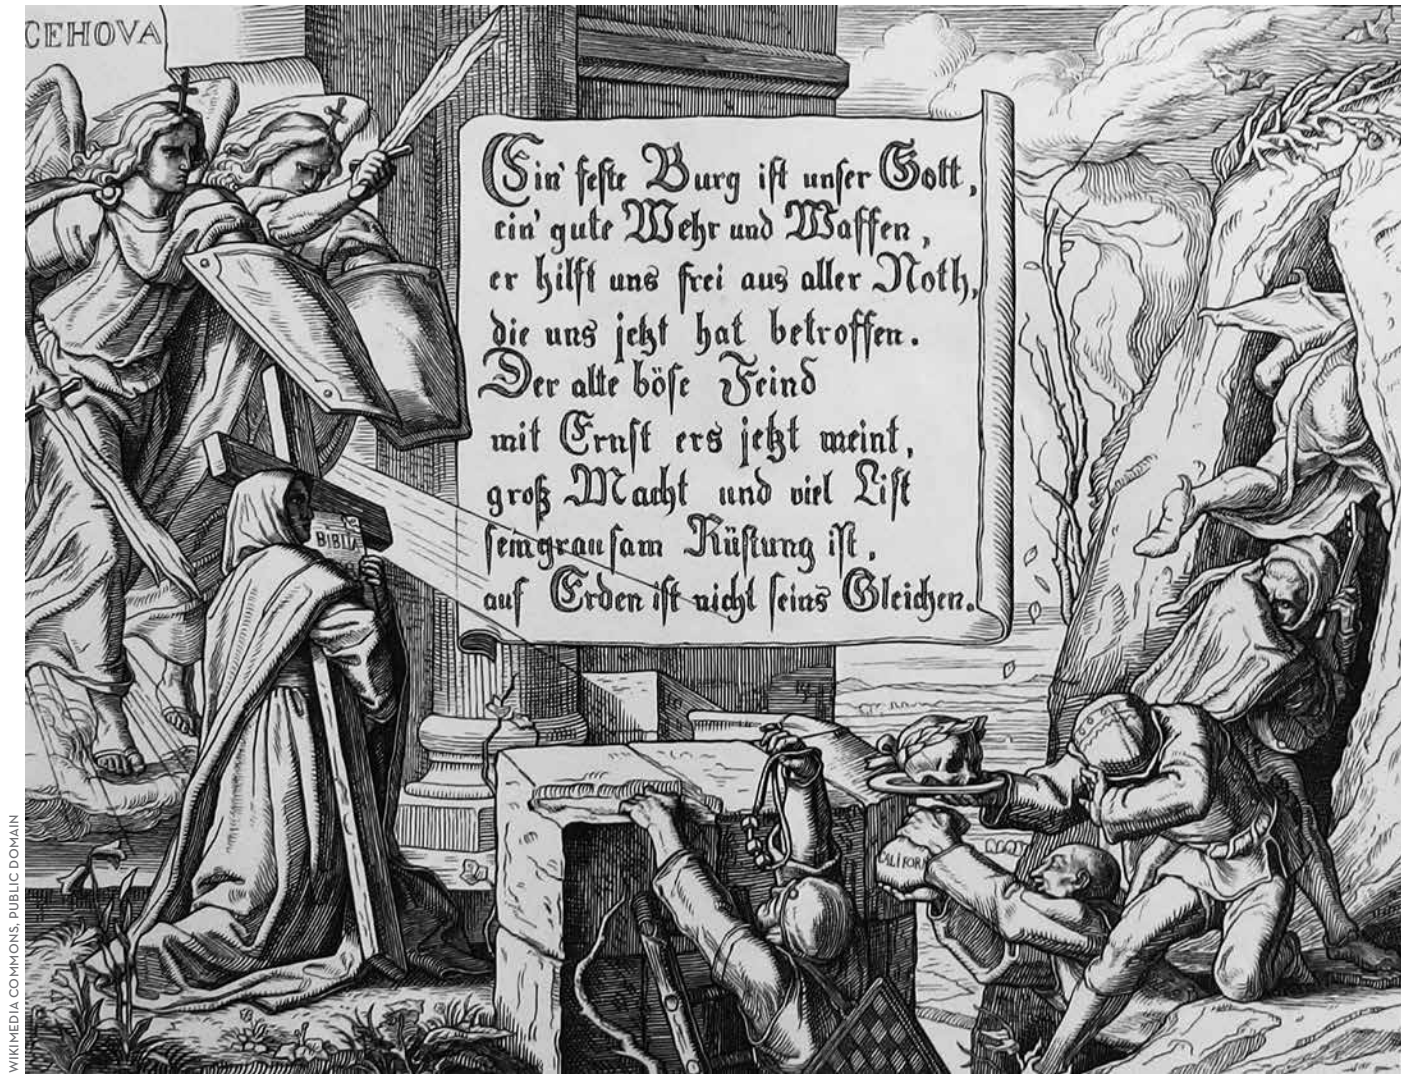 CEHOVA
Ein' feste Burg ist unser Gott,
ein' gute Wehr und Waffen,
er hilft uns frei aus aller Noth,
die uns jetzt hat betroffen.
Der alte böse Feind
mit Ernst ers jetzt meint,
groß Macht und viel List
sein grausam Rüstung ist,
auf Erden ist nicht seins Gleichen.
BIBLIA
CALIFORN
WIKIMEDIA COMMONS, PUBLIC DOMAIN